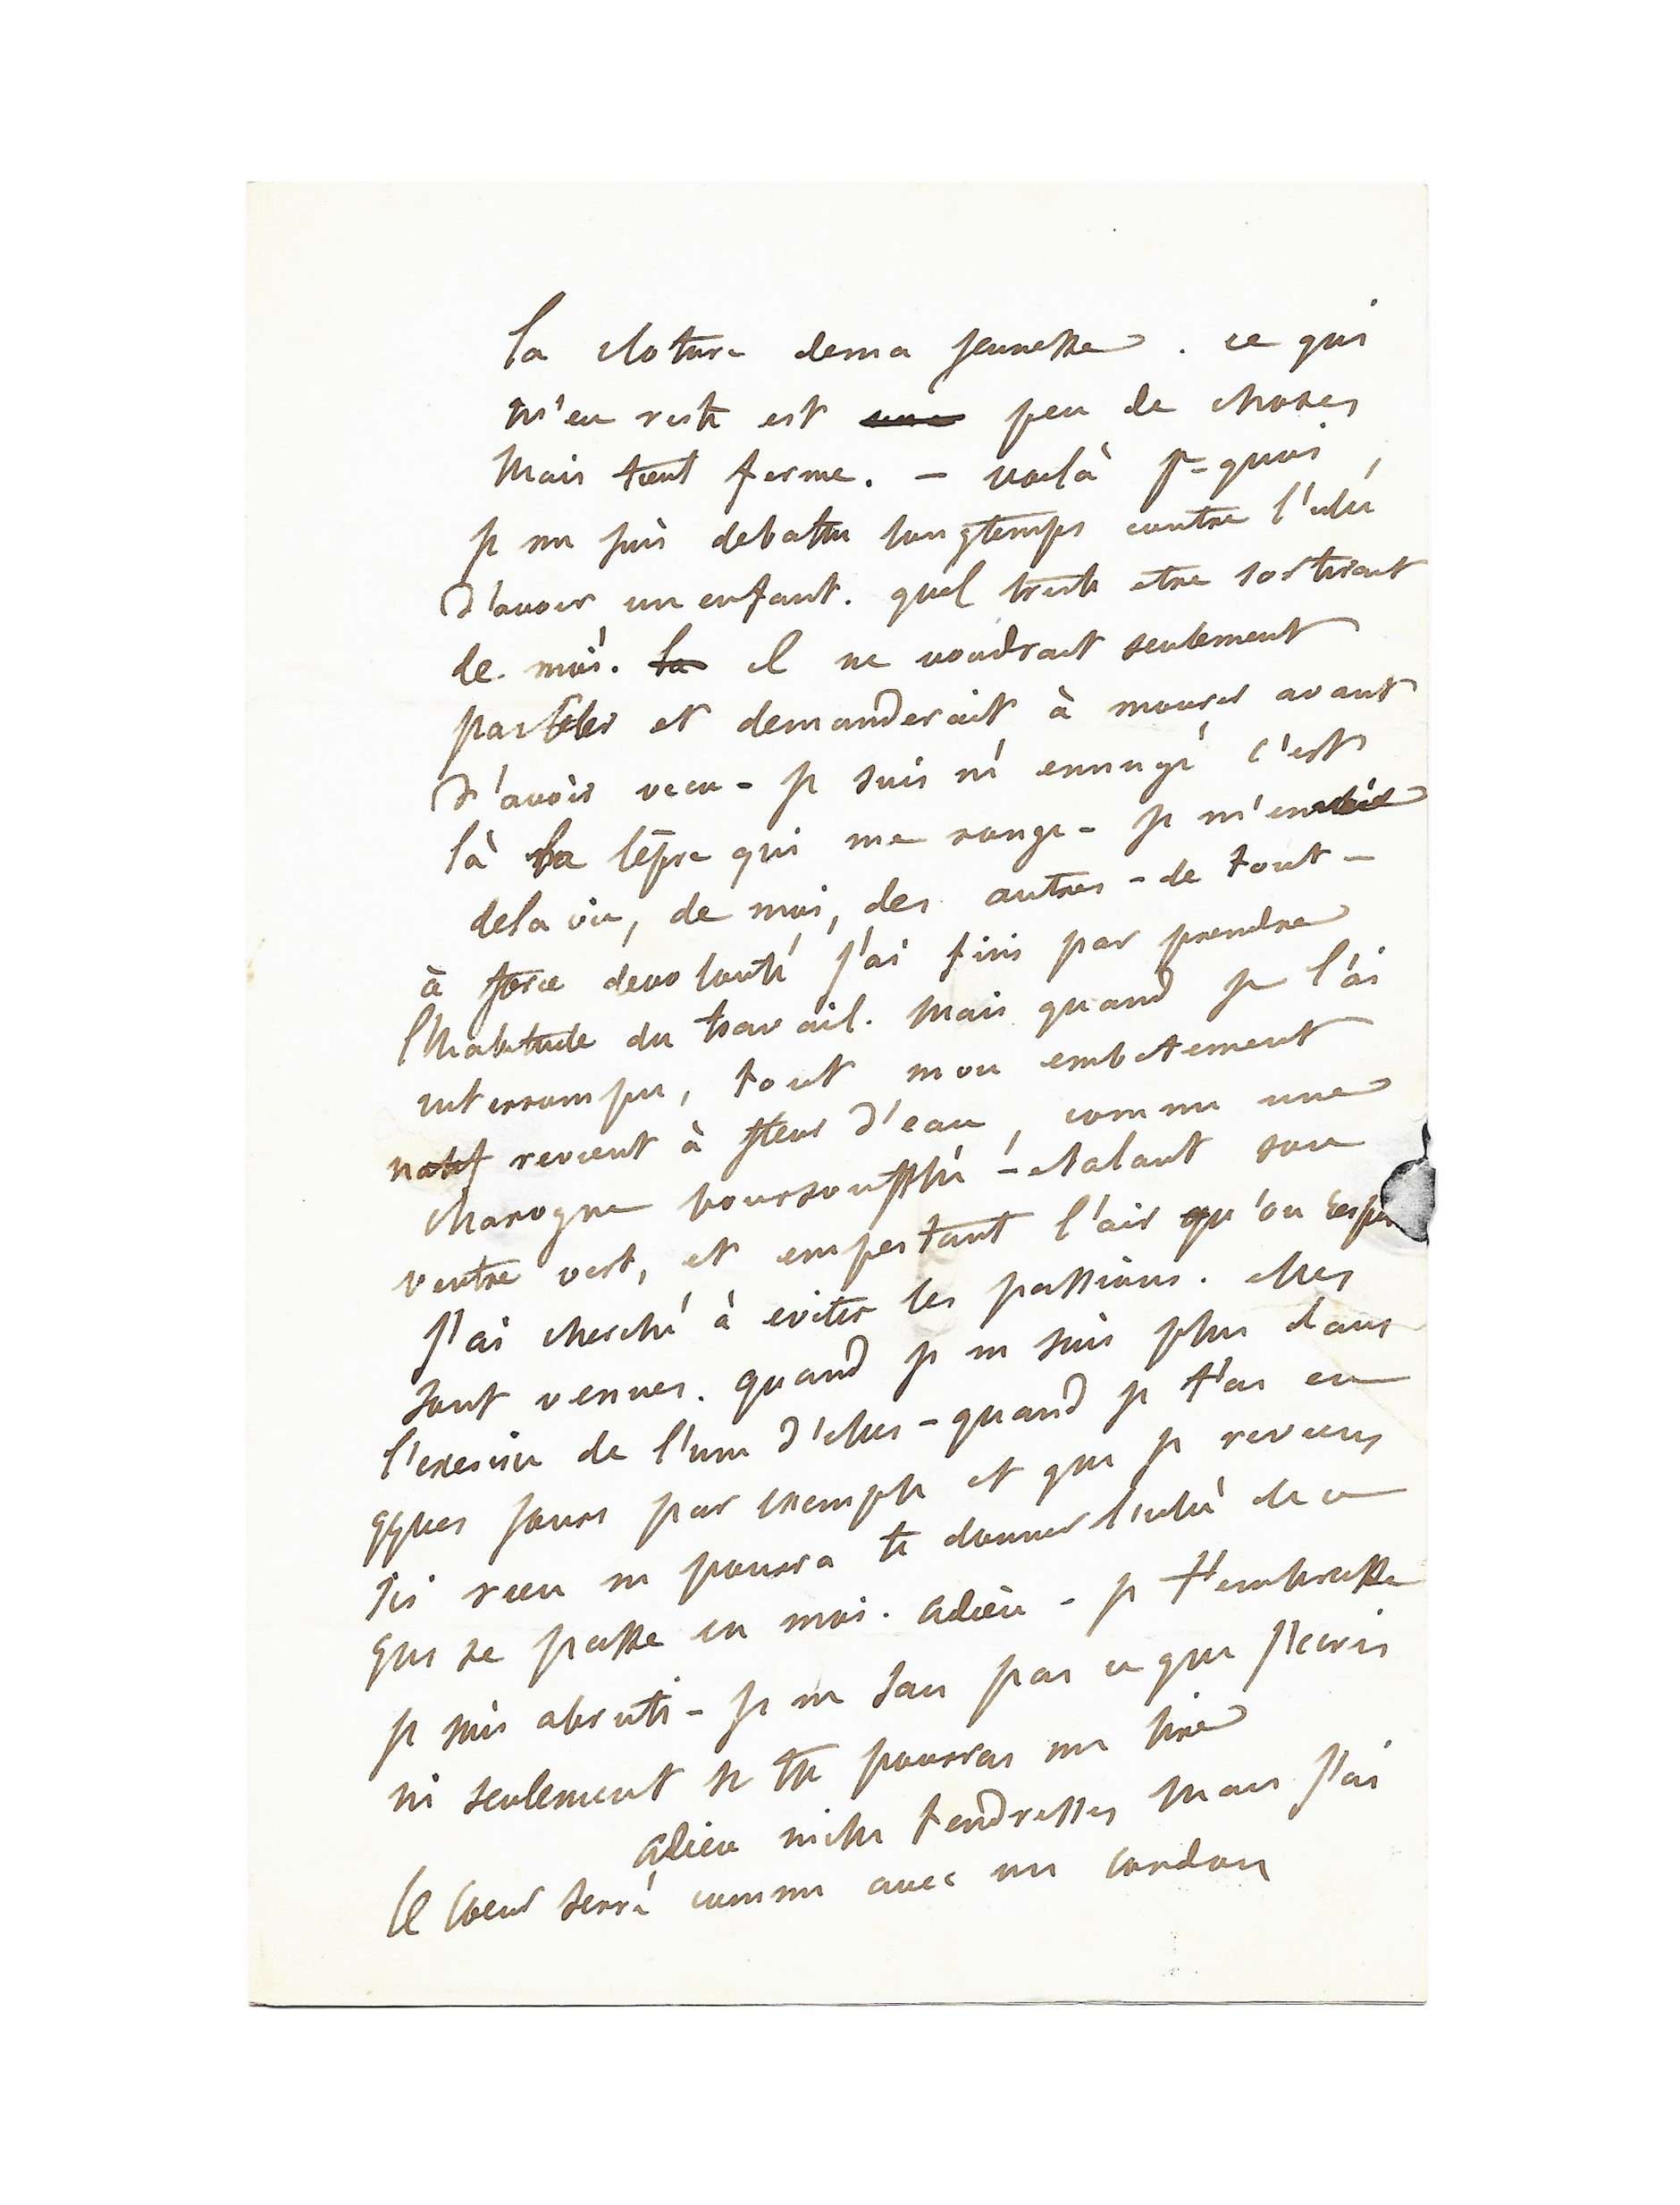 la cloture dema jeunesse. ce qui
m'en reste est peu de choses
Mais tient ferme. — voilà pr-quoi,
je me suis debattu longtemps contre l'idée
d'avoir un enfant. quel triste etre sortirait
de moi. il ne voudrait seulement
pas teter et demanderait à mourir avant
d'avoir vecu - je suis né ennuyé c'est
là la lèpre qui me ronge - je m'ennuie
dela vie, de moi, des autres - de tout -
à force devolonté j'ai fini par prendre
l'habitude du travail. mais quand je l'ai
interrompu, tout mon embetement
revient à fleur d'eau, comme une
charogne boursoufflée - étalant son
ventre vert, et empestant l'air qu'on respire
j'ai cherché à eviter les passions. elles
sont venues. quand je ne suis plus dans
l'exercice de l'une d'elles - quand je t'ai eu
qques jours par exemple et que je reviens
ici rien ne pourra te donner l'idée de ce
qui se passe en moi. adieu - je t'embrasse
je suis abruti - je ne sais pas ce que j'ecris
ni seulement si tu pourras me lire
adieu mille tendresses mais j'ai
le coeur serré comme avec un cordon